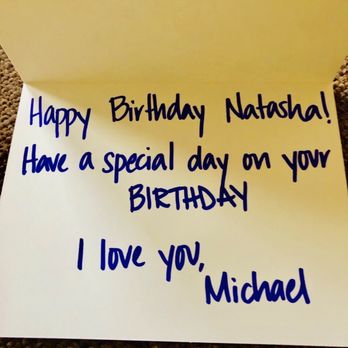 Happy Birthday Natasha!
Have a special day on your
BIRTHDAY
I love you,
Michael